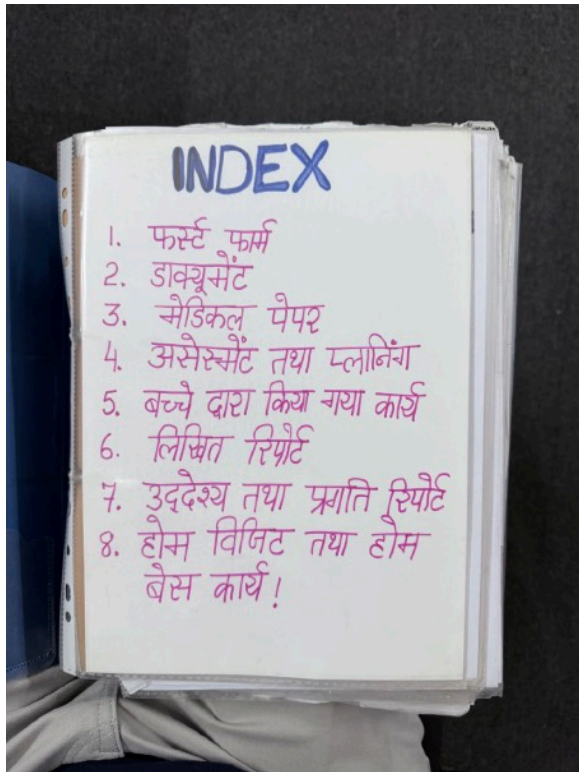 INDEX
1. फर्स्ट फार्म
2. डाक्यूमेंट
3. मेडिकल पेपर
4. असेस्मेंट तथा प्लानिंग
5. बच्चे द्वारा किया गया कार्य
6. लिखित रिपोर्ट
7. उद्देश्य तथा प्रगति रिपोर्ट
8. होम विजिट तथा होम
बेस कार्य!